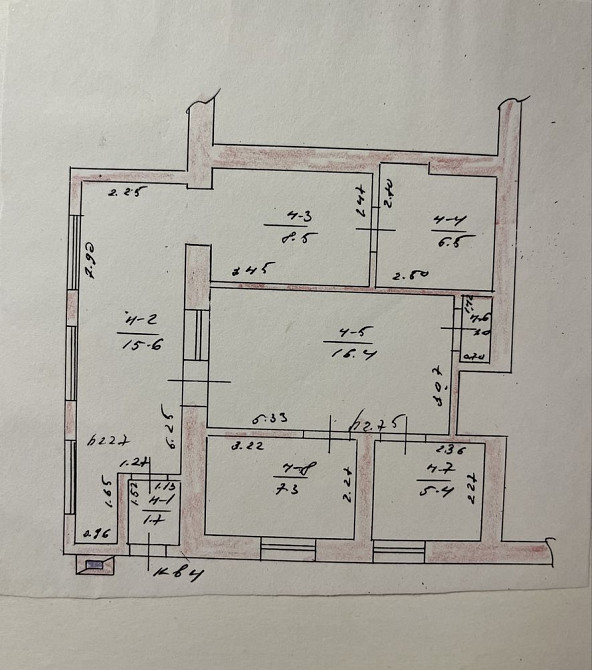 2.25
4-3
8.5
2.47
2.70
4-4
6.5
7.90
3.45
2.50
4-2
15.6
4-5
16.4
4-6
1.0
0.70
3.07
5.33
h2.75
6.25
h2.27
3.22
2.36
1.27
1.65
1.52
1.13
4-1
1.7
4-8
7.3
2.27
4-7
5.4
2.27
0.96
кв 4